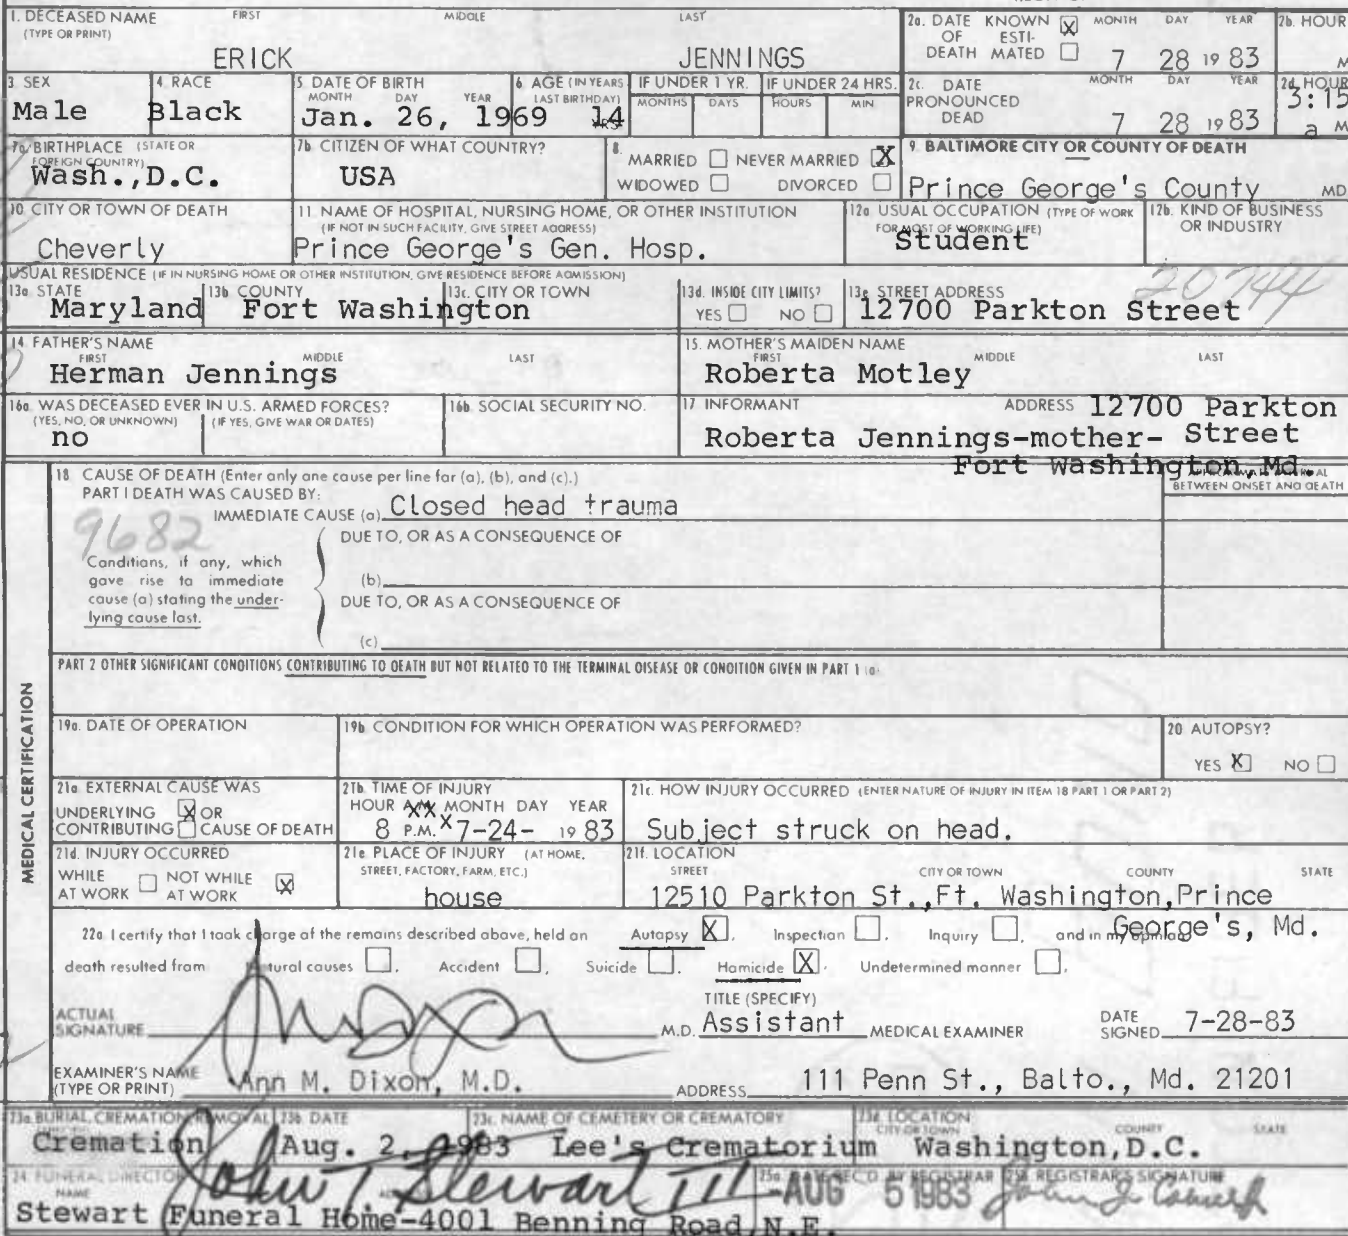 1. DECEASED NAME FIRST MIDDLE LAST
(TYPE OR PRINT)
ERICK JENNINGS
2a. DATE KNOWN X MONTH DAY YEAR
OF ESTI-
DEATH MATED 7 28 19 83
2b. HOUR
M
3 SEX
Male
4. RACE
Black
5 DATE OF BIRTH
MONTH DAY YEAR
Jan. 26, 1969
6 AGE (IN YEARS
LAST BIRTHDAY)
14 YRS
IF UNDER 1 YR.
MONTHS DAYS
IF UNDER 24 HRS.
HOURS MIN
2c. DATE MONTH DAY YEAR
PRONOUNCED
DEAD 7 28 19 83
2d. HOUR
3:15
a M
7a BIRTHPLACE (STATE OR
FOREIGN COUNTRY)
Wash.,D.C.
7b CITIZEN OF WHAT COUNTRY?
USA
8.
MARRIED NEVER MARRIED X
WIDOWED DIVORCED
9. BALTIMORE CITY OR COUNTY OF DEATH
Prince George's County MD
10. CITY OR TOWN OF DEATH
Cheverly
11. NAME OF HOSPITAL, NURSING HOME, OR OTHER INSTITUTION
(IF NOT IN SUCH FACILITY, GIVE STREET ADDRESS)
Prince George's Gen. Hosp.
12a USUAL OCCUPATION (TYPE OF WORK
FOR MOST OF WORKING LIFE)
Student
12b. KIND OF BUSINESS
OR INDUSTRY
USUAL RESIDENCE (IF IN NURSING HOME OR OTHER INSTITUTION, GIVE RESIDENCE BEFORE ADMISSION)
13a STATE
Maryland
13b COUNTY 13c. CITY OR TOWN
Fort Washington
13d. INSIDE CITY LIMITS?
YES NO
13e STREET ADDRESS
12700 Parkton Street
20744
14 FATHER'S NAME
FIRST MIDDLE LAST
Herman Jennings
15. MOTHER'S MAIDEN NAME
FIRST MIDDLE LAST
Roberta Motley
16a WAS DECEASED EVER IN U.S. ARMED FORCES?
(YES, NO, OR UNKNOWN) (IF YES, GIVE WAR OR DATES)
no
16b SOCIAL SECURITY NO.
17 INFORMANT ADDRESS 12700 Parkton
Roberta Jennings-mother- Street
Fort Washington, Md.
18 CAUSE OF DEATH (Enter only one cause per line for (a), (b), and (c).)
BETWEEN ONSET AND DEATH
PART I DEATH WAS CAUSED BY:
IMMEDIATE CAUSE (a) Closed head trauma
9682
DUE TO, OR AS A CONSEQUENCE OF
Conditions, if any, which
gave rise to immediate
cause (a) stating the under-
lying cause last.
(b)
DUE TO, OR AS A CONSEQUENCE OF
(c)
PART 2 OTHER SIGNIFICANT CONDITIONS CONTRIBUTING TO DEATH BUT NOT RELATED TO THE TERMINAL DISEASE OR CONDITION GIVEN IN PART 1 (a)
MEDICAL CERTIFICATION
19a. DATE OF OPERATION
19b. CONDITION FOR WHICH OPERATION WAS PERFORMED?
20. AUTOPSY?
YES X NO
21a EXTERNAL CAUSE WAS
UNDERLYING X OR
CONTRIBUTING CAUSE OF DEATH
21b. TIME OF INJURY
HOUR A.M. MONTH DAY YEAR
8 P.M. X 7-24- 19 83
21c. HOW INJURY OCCURRED (ENTER NATURE OF INJURY IN ITEM 18 PART 1 OR PART 2)
Subject struck on head.
21d. INJURY OCCURRED
WHILE NOT WHILE
AT WORK AT WORK X
21e PLACE OF INJURY (AT HOME,
STREET, FACTORY, FARM, ETC.)
house
21f. LOCATION
STREET CITY OR TOWN COUNTY STATE
12510 Parkton St.,Ft. Washington,Prince
George's, Md.
22a I certify that I took charge of the remains described above, held an Autopsy X, Inspection, Inquiry, and in my opinion
death resulted from Natural causes, Accident, Suicide, Homicide X, Undetermined manner,
ACTUAL
SIGNATURE M.D.
TITLE (SPECIFY)
Assistant MEDICAL EXAMINER
DATE
SIGNED 7-28-83
EXAMINER'S NAME
(TYPE OR PRINT) Ann M. Dixon, M.D.
ADDRESS 111 Penn St., Balto., Md. 21201
23a BURIAL, CREMATION, REMOVAL
Cremation
23b DATE
Aug. 2, 1983
23c. NAME OF CEMETERY OR CREMATORY
Lee's Crematorium
23d LOCATION
CITY OR TOWN COUNTY STATE
Washington,D.C.
24. FUNERAL DIRECTOR
NAME
John T. Stewart III
Stewart Funeral Home-4001 Benning Road,N.E.
25a DATE REC'D BY REGISTRAR
AUG 5 1983
25b REGISTRAR'S SIGNATURE